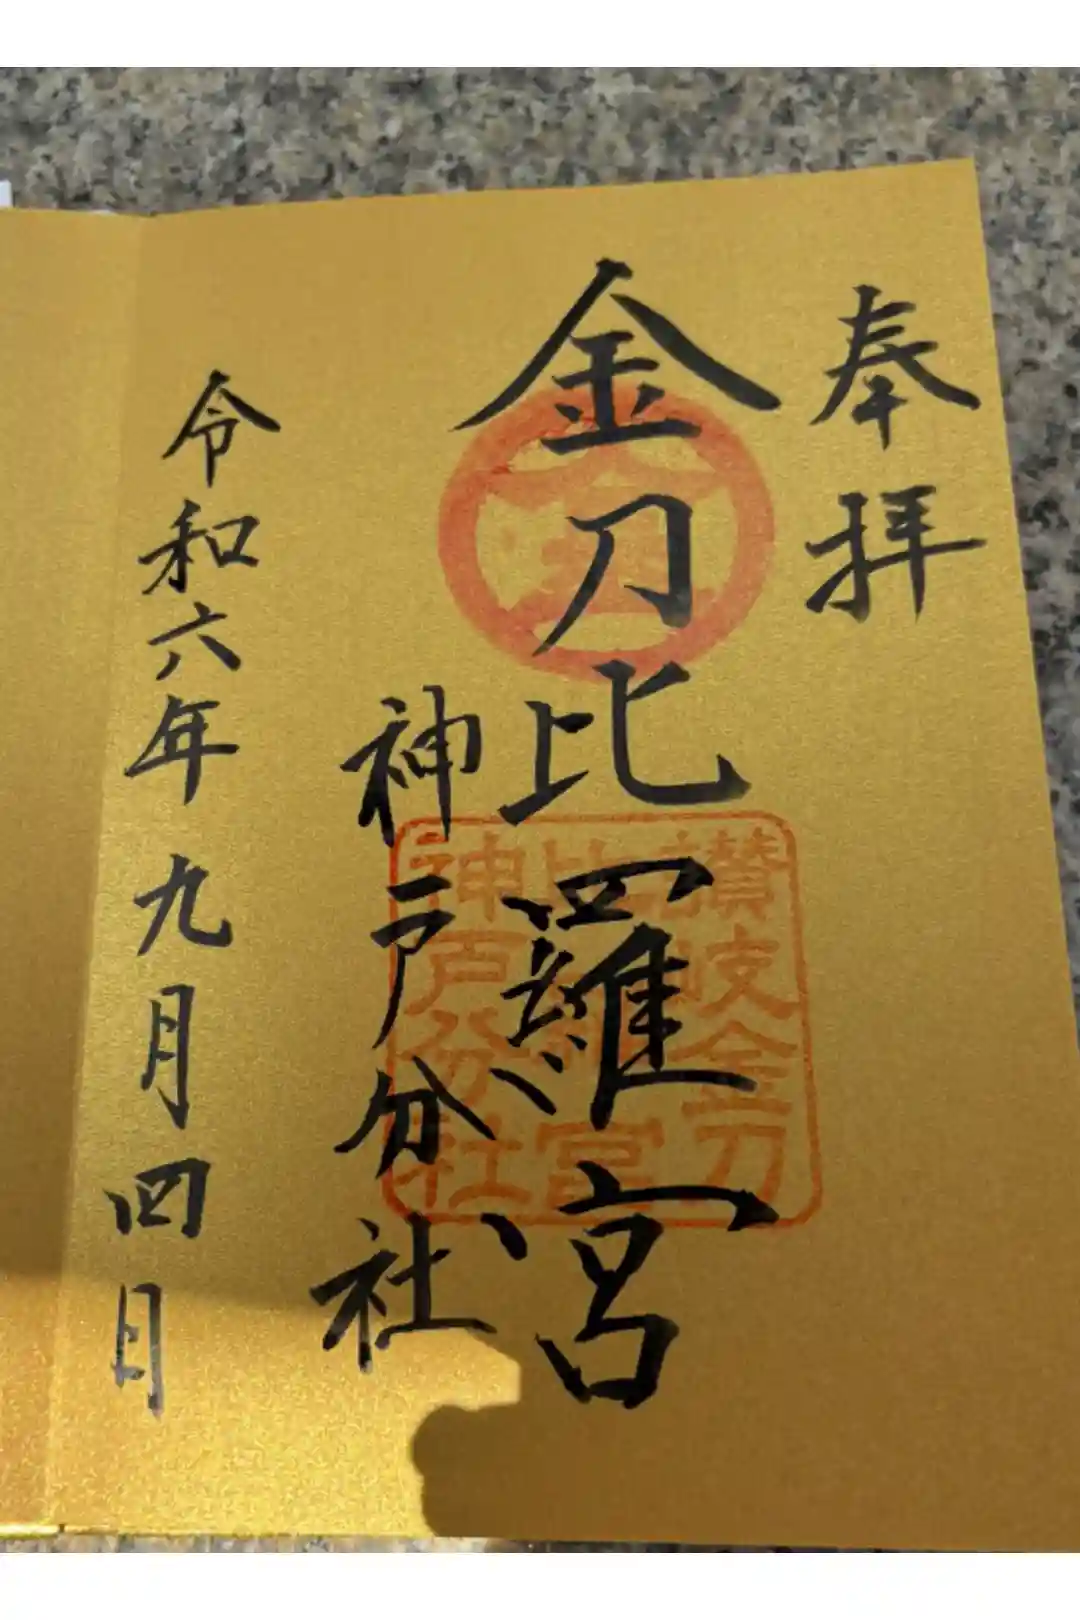 奉拝
金刀比羅宮
神戸分社
令和六年九月四日
讃岐金刀
比羅宮
神戸分社